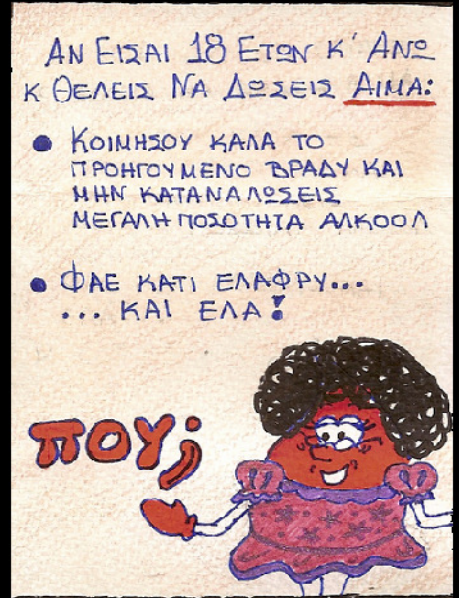 ΑΝ ΕΙΣΑΙ 18 ΕΤΩΝ Κ' ΑΝΩ
Κ ΘΕΛΕΙΣ ΝΑ ΔΩΣΕΙΣ ΑΙΜΑ:
• ΚΟΙΜΗΣΟΥ ΚΑΛΑ ΤΟ
ΠΡΟΗΓΟΥΜΕΝΟ ΒΡΑΔΥ ΚΑΙ
ΜΗΝ ΚΑΤΑΝΑΛΩΣΕΙΣ
ΜΕΓΑΛΗ ΠΟΣΟΤΗΤΑ ΑΛΚΟΟΛ
• ΦΑΕ ΚΑΤΙ ΕΛΑΦΡΥ...
... ΚΑΙ ΕΛΑ!
ΠΟΥ;